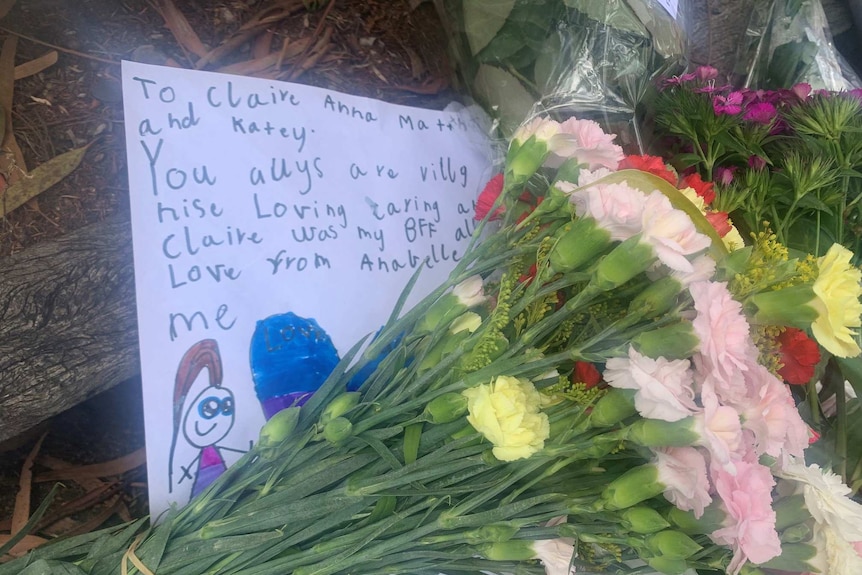 To Claire Anna
and Katey.
You guys are rilly
nise Loving caring
Claire was my BFF
Love from Anabelle
me